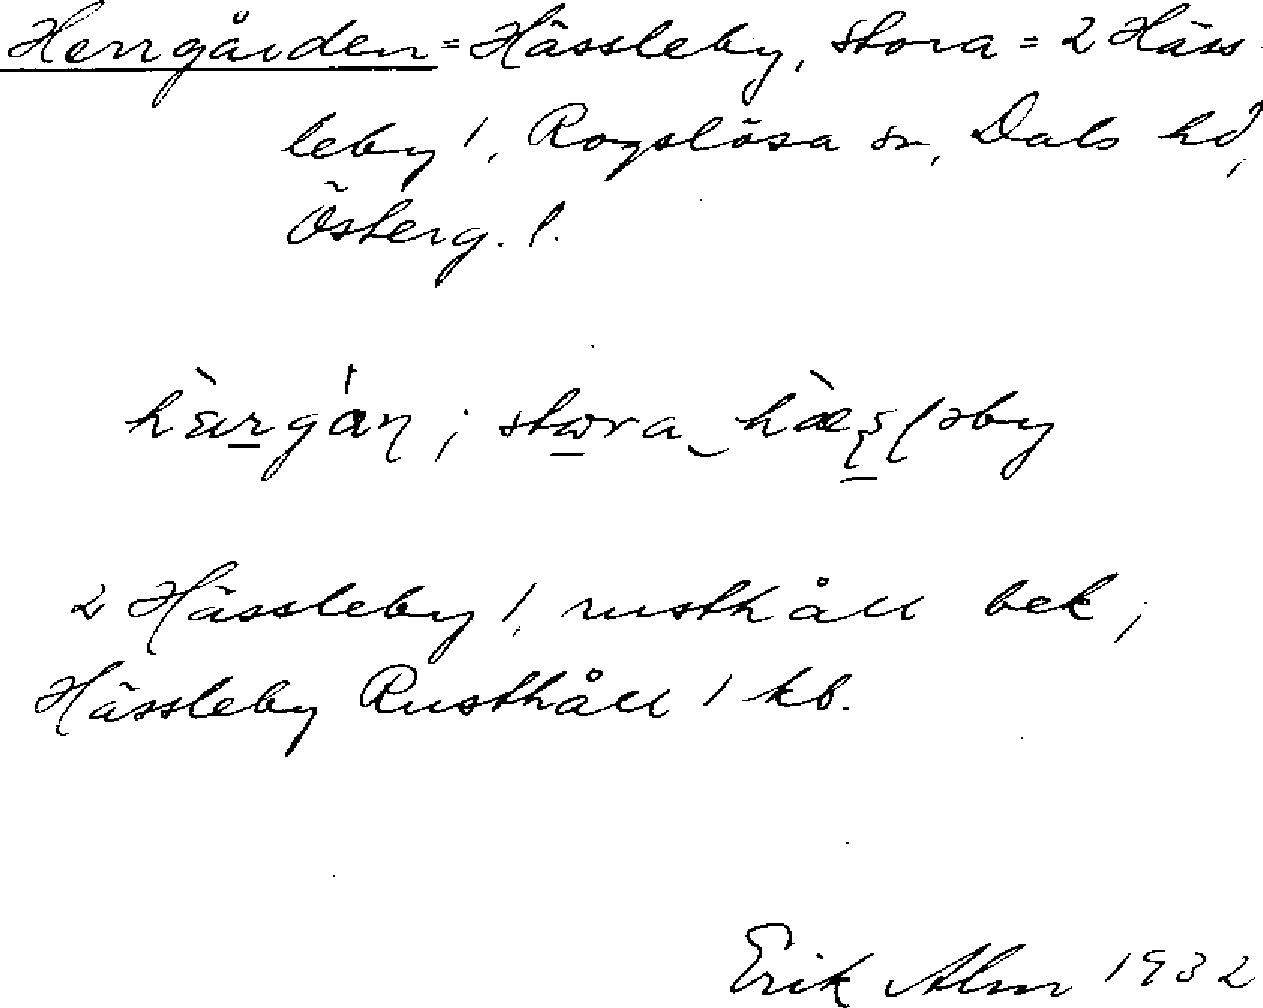 Herrgården = Hässleby, Stora = 2 Häss-
leby 1, Rogslösa sn, Dals hd,
Österg. l.
stora
2 Hässleby 1, rusthåll bek;
Hässleby Rusthåll 1 kb.
Erik Alm 1932